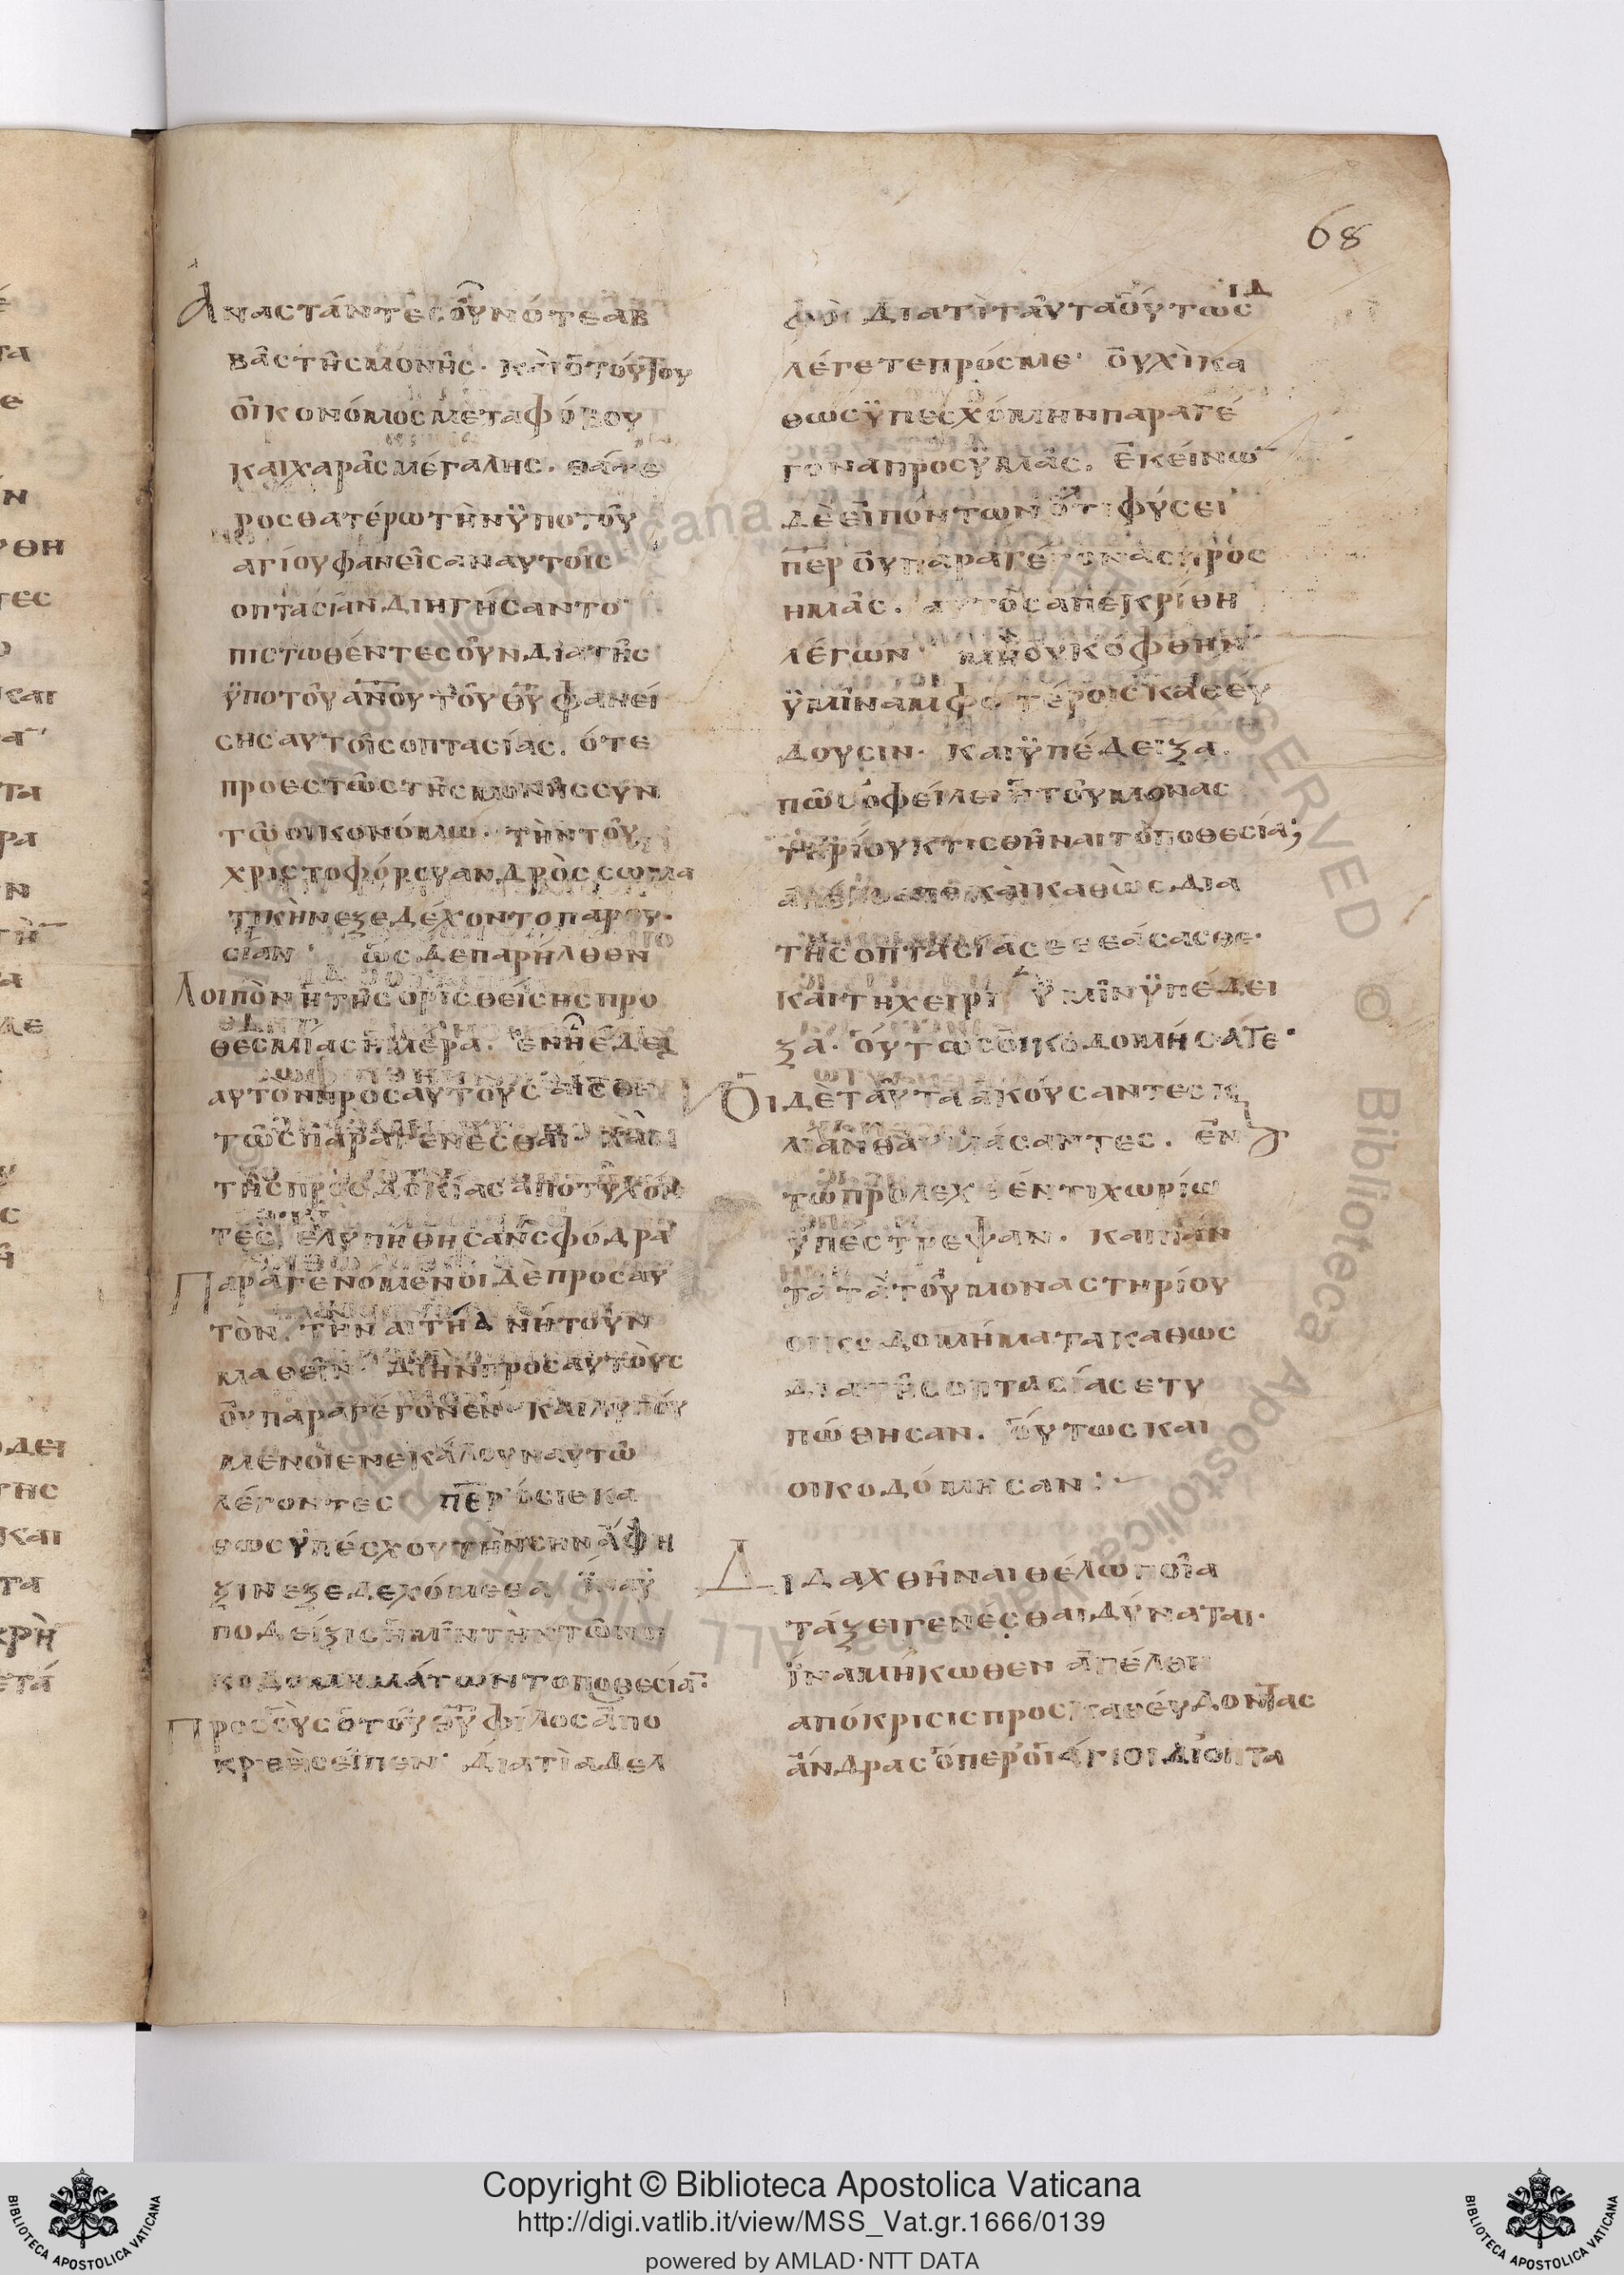 68
ἀναστάντες οὖν ὅ τε ἀβ
βᾶς τῆς μονῆς. καὶ ὁ τούτου
οἰκονόμος μετα φόβου
και χαρᾶς μεγάλης. θάτε
ρος θατέρω τὴν ϋπο τοῦ
ἁγίου φανεῖσαν αυτοῖς
οπτασίαν διηγήσαντο
πιστωθέντες οὖν δια τῆς
ϋπο τοῦ ανου τοῦ θυ φανεί
σης αυτοῖς οπτασίας. ὅ τε
προεστὼς τῆς μονῆς συν
τῶ οικονόμω. τὴν τοῦ
χριστοφόρου ανδρὸς σωμα
τικὴν εξεδέχοντο παρου
σίαν· ὡς δε παρῆλθεν
λοιπὸν ἡ τῆς ορισθείσης προ
θεσμίας ἡμέρα. ἐν ἧ ἔδει
αυτὸν προς αυτους αισθη
τῶς παραγενέσθαι. και
τῆς προσδοκίας αποτυχόν
τες, ελυπήθησαν σφόδρα
Παραγενομενοι δὲ προς αυ
τὸν. την αιτίαν ἠτουν
μαθεῖν δι ην προς αυτοὺς
οὐ παραγέγονεν· και λυπού
μενοι ενεκάλουν αυτῶ
λέγοντες περ ὅσιε κα
θως ϋπέσχου τὴν σὴν ἄφη
ξιν εξεδεχόμεθα ἵνα ϋ
ποδείξις ἡμῖν τὴν τῶν οι
κοδομημάτων τοποθεσίαν·
Προς οὓς ὁ τοῦ θυ φίλος ἀπο
κριθεὶς εἶπεν· Διατὶ αδελ
ιδ
φοὶ Διατὶ ταῦτα οὕτως
λέγετε πρός με· οὐχὶ κα
θως ϋπεσχόμην παραγέ
γονα προς ϋμᾶς. Ἐκείνων
δὲ εἰπόντων ὅτι φύσει
περ οὐ παραγέγονας προς
ημᾶς. αυτὸς απεκρίθη
λέγων· μὴ ουκ ὄφθην
ϋμῖν αμφοτέροις καθευ
δουσιν· και ϋπέδειξα
πῶς οφείλει ἡ τοῦ μονασ
τηρίου κτισθῆναι τοποθεσία;
καὶ καθὼς δια
της οπτασίας εθεάσασθε·
και τη χειρὶ ϋμῖν ϋπέδει
ξα· ὅυτως οἰκοδομήσατε·
Οἱ δὲ ταῦτα ἀκούσαντες κ
λίαν θαυμάσαντες. ἐν
τῶ προλεχθέντι χωρίω
ϋπέστρεψαν. και πάν
τα τὰ τοῦ μοναστηρίου
οικοδομήματα καθως
δια τῆς οπτασίας ετυ
πώθησαν. ὅυτως και
οικοδόμησαν:
Διδαχθῆναι θέλω ποία
τάξει γενέσθαι δύναται·
ἵνα μήκωθεν ἀπέλθη
απόκρισις προς καθεύδοντας
ἄνδρας ὅπερ οἱ ἅγιοι δι οπτα
Copyright © Biblioteca Apostolica Vaticana
http://digi.vatlib.it/view/MSS_Vat.gr.1666/0139
powered by AMLAD·NTT DATA